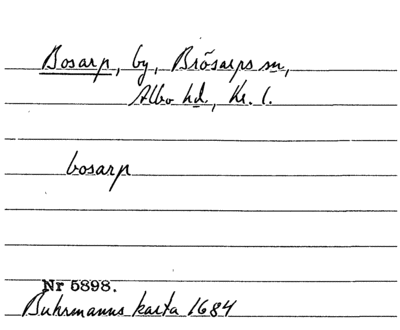 Bosarp, by, Brösarps sn,
Albo hd, Kr. l.
bosarp
Nr 5898.
Buhrmanns karta 1684